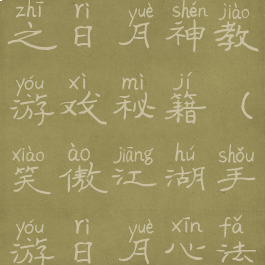 zhī rì yuè shén jiào
之日月神教
yóu xì mì jí
游戏秘籍（
xiào ào jiāng hú shǒu
笑傲江湖手
yóu rì yuè xīn fǎ
游日月心法